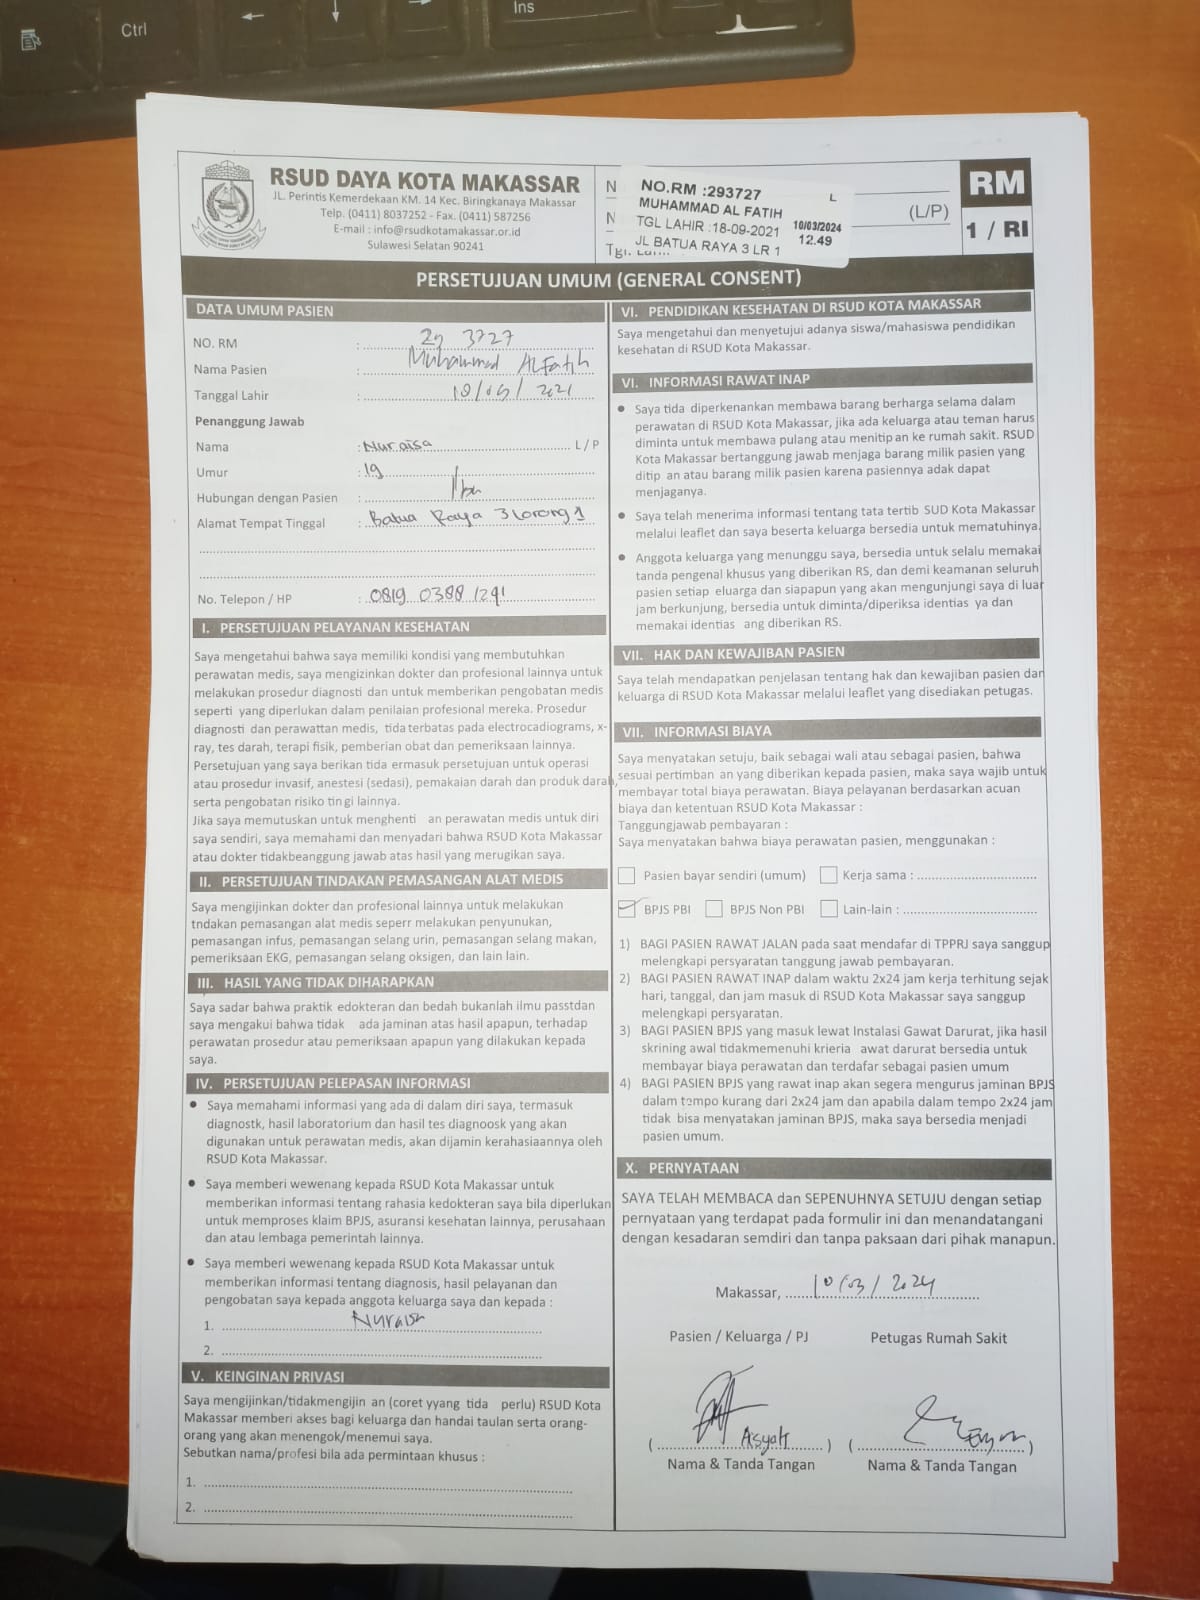 Ctrl
Ins
RSUD DAYA KOTA MAKASSAR
JL. Perintis Kemerdekaan KM. 14 Kec. Biringkanaya Makassar
Telp. (0411) 8037252 - Fax. (0411) 587256
E-mail : info@rsudkotamakassar.or.id
Sulawesi Selatan 90241
N
N
Tgl.
(L/P)
NO.RM :293727 L
MUHAMMAD AL FATIH
TGL LAHIR :18-09-2021 10/03/2024
JL BATUA RAYA 3 LR 1 12.49
RM
1 / RI
PERSETUJUAN UMUM (GENERAL CONSENT)
DATA UMUM PASIEN
NO. RM : 29 3727
Nama Pasien : Muhammad Al Fatih
Tanggal Lahir : 18/09/2021
Penanggung Jawab
Nama : Nuraisa L / P
Umur : 19
Hubungan dengan Pasien : Ibu
Alamat Tempat Tinggal : Batua Raya 3 lorong 1
No. Telepon / HP : 0819 0388 1291
I. PERSETUJUAN PELAYANAN KESEHATAN
Saya mengetahui bahwa saya memiliki kondisi yang membutuhkan
perawatan medis, saya mengizinkan dokter dan profesional lainnya untuk
melakukan prosedur diagnosti dan untuk memberikan pengobatan medis
seperti yang diperlukan dalam penilaian profesional mereka. Prosedur
diagnosti dan perawattan medis, tida terbatas pada electrocadiograms, x-
ray, tes darah, terapi fisik, pemberian obat dan pemeriksaan lainnya.
Persetujuan yang saya berikan tida ermasuk persetujuan untuk operasi
atau prosedur invasif, anestesi (sedasi), pemakaian darah dan produk darah,
serta pengobatan risiko tin gi lainnya.
Jika saya memutuskan untuk menghenti an perawatan medis untuk diri
saya sendiri, saya memahami dan menyadari bahwa RSUD Kota Makassar
atau dokter tidakbeanggung jawab atas hasil yang merugikan saya.
II. PERSETUJUAN TINDAKAN PEMASANGAN ALAT MEDIS
Saya mengijinkan dokter dan profesional lainnya untuk melakukan
tndakan pemasangan alat medis seperr melakukan penyunukan,
pemasangan infus, pemasangan selang urin, pemasangan selang makan,
pemeriksaan EKG, pemasangan selang oksigen, dan lain lain.
III. HASIL YANG TIDAK DIHARAPKAN
Saya sadar bahwa praktik edokteran dan bedah bukanlah ilmu passtdan
saya mengakui bahwa tidak ada jaminan atas hasil apapun, terhadap
perawatan prosedur atau pemeriksaan apapun yang dilakukan kepada
saya.
IV. PERSETUJUAN PELEPASAN INFORMASI
• Saya memahami informasi yang ada di dalam diri saya, termasuk
diagnostk, hasil laboratorium dan hasil tes diagnoosk yang akan
digunakan untuk perawatan medis, akan dijamin kerahasiaannya oleh
RSUD Kota Makassar.
• Saya memberi wewenang kepada RSUD Kota Makassar untuk
memberikan informasi tentang rahasia kedokteran saya bila diperlukan
untuk memproses klaim BPJS, asuransi kesehatan lainnya, perusahaan
dan atau lembaga pemerintah lainnya.
• Saya memberi wewenang kepada RSUD Kota Makassar untuk
memberikan informasi tentang diagnosis, hasil pelayanan dan
pengobatan saya kepada anggota keluarga saya dan kepada :
1. Nuraisa
2.
V. KEINGINAN PRIVASI
Saya mengijinkan/tidakmengijin an (coret yyang tida perlu) RSUD Kota
Makassar memberi akses bagi keluarga dan handai taulan serta orang-
orang yang akan menengok/menemui saya.
Sebutkan nama/profesi bila ada permintaan khusus :
1.
2.
VI. PENDIDIKAN KESEHATAN DI RSUD KOTA MAKASSAR
Saya mengetahui dan menyetujui adanya siswa/mahasiswa pendidikan
kesehatan di RSUD Kota Makassar.
VI. INFORMASI RAWAT INAP
• Saya tida diperkenankan membawa barang berharga selama dalam
perawatan di RSUD Kota Makassar, jika ada keluarga atau teman harus
diminta untuk membawa pulang atau menitip an ke rumah sakit. RSUD
Kota Makassar bertanggung jawab menjaga barang milik pasien yang
ditip an atau barang milik pasien karena pasiennya adak dapat
menjaganya.
• Saya telah menerima informasi tentang tata tertib SUD Kota Makassar
melalui leaflet dan saya beserta keluarga bersedia untuk mematuhinya.
• Anggota keluarga yang menunggu saya, bersedia untuk selalu memakai
tanda pengenal khusus yang diberikan RS, dan demi keamanan seluruh
pasien setiap eluarga dan siapapun yang akan mengunjungi saya di luar
jam berkunjung, bersedia untuk diminta/diperiksa identias ya dan
memakai identias ang diberikan RS.
VII. HAK DAN KEWAJIBAN PASIEN
Saya telah mendapatkan penjelasan tentang hak dan kewajiban pasien dan
keluarga di RSUD Kota Makassar melalui leaflet yang disediakan petugas.
VII. INFORMASI BIAYA
Saya menyatakan setuju, baik sebagai wali atau sebagai pasien, bahwa
sesuai pertimban an yang diberikan kepada pasien, maka saya wajib untuk
membayar total biaya perawatan. Biaya pelayanan berdasarkan acuan
biaya dan ketentuan RSUD Kota Makassar :
Tanggungjawab pembayaran :
Saya menyatakan bahwa biaya perawatan pasien, menggunakan :
Pasien bayar sendiri (umum) Kerja sama :
BPJS PBI BPJS Non PBI Lain-lain :
1) BAGI PASIEN RAWAT JALAN pada saat mendafar di TPPRJ saya sanggup
melengkapi persyaratan tanggung jawab pembayaran.
2) BAGI PASIEN RAWAT INAP dalam waktu 2x24 jam kerja terhitung sejak
hari, tanggal, dan jam masuk di RSUD Kota Makassar saya sanggup
melengkapi persyaratan.
3) BAGI PASIEN BPJS yang masuk lewat Instalasi Gawat Darurat, jika hasil
skrining awal tidakmemenuhi krieria awat darurat bersedia untuk
membayar biaya perawatan dan terdafar sebagai pasien umum
4) BAGI PASIEN BPJS yang rawat inap akan segera mengurus jaminan BPJS
dalam tempo kurang dari 2x24 jam dan apabila dalam tempo 2x24 jam
tidak bisa menyatakan jaminan BPJS, maka saya bersedia menjadi
pasien umum.
X. PERNYATAAN
SAYA TELAH MEMBACA dan SEPENUHNYA SETUJU dengan setiap
pernyataan yang terdapat pada formulir ini dan menandatangani
dengan kesadaran semdiri dan tanpa paksaan dari pihak manapun.
Makassar, 10/03/2024
Pasien / Keluarga / PJ Petugas Rumah Sakit
( Asyah ) ( )
Nama & Tanda Tangan Nama & Tanda Tangan